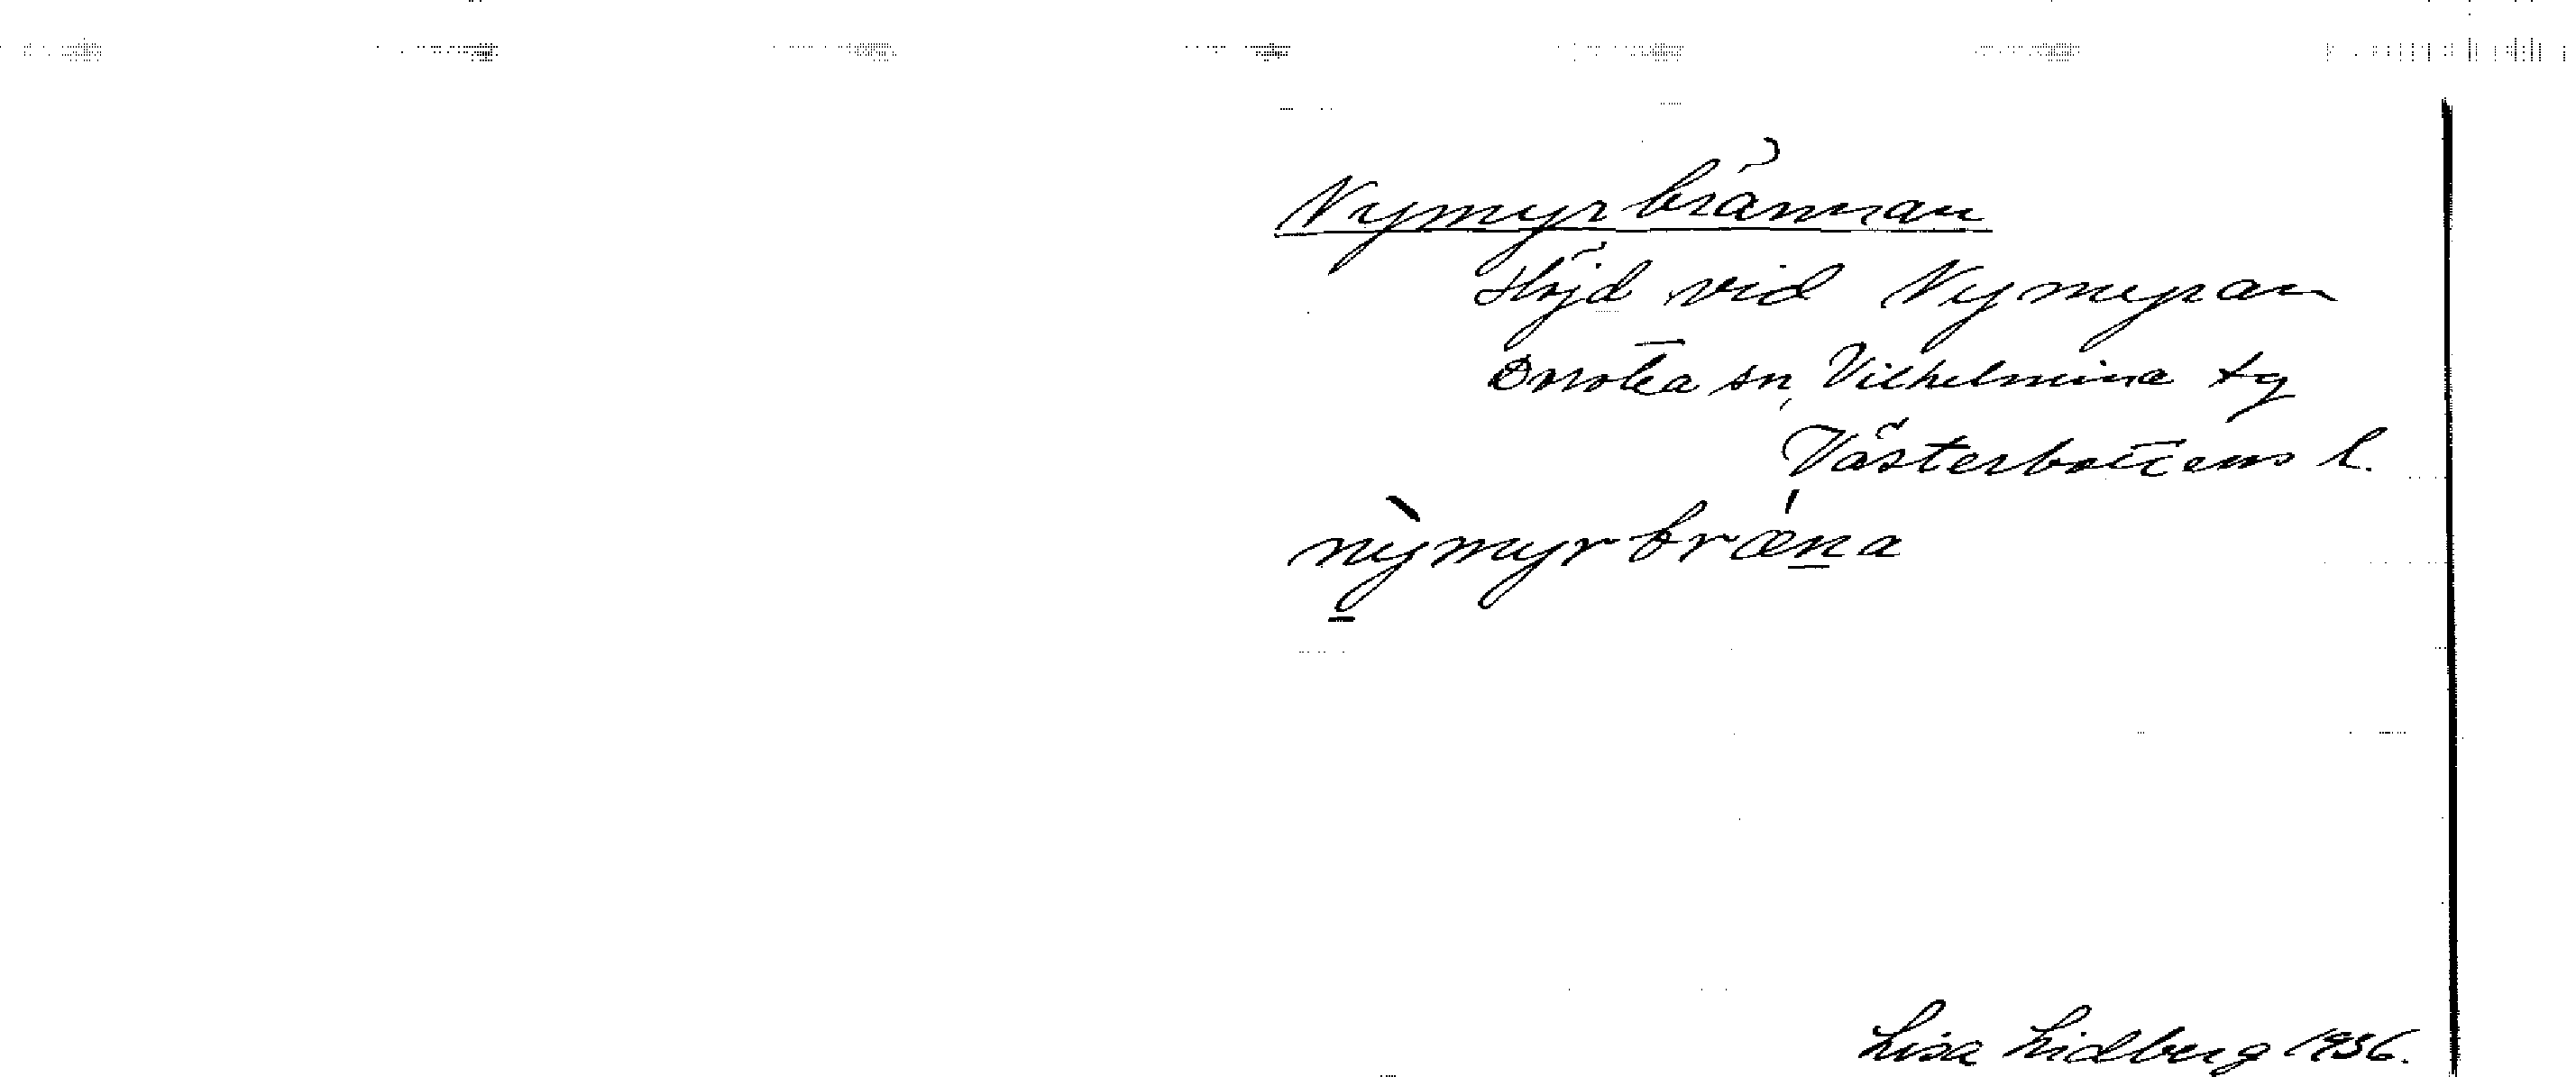 Nymyrbrännan
Höjd vid Nymyran
Dorotea sn, Vilhelmina tg
Västerbottens l.
nỳ̲myrbræ̍n̲a
Lisa Lidberg 1936.